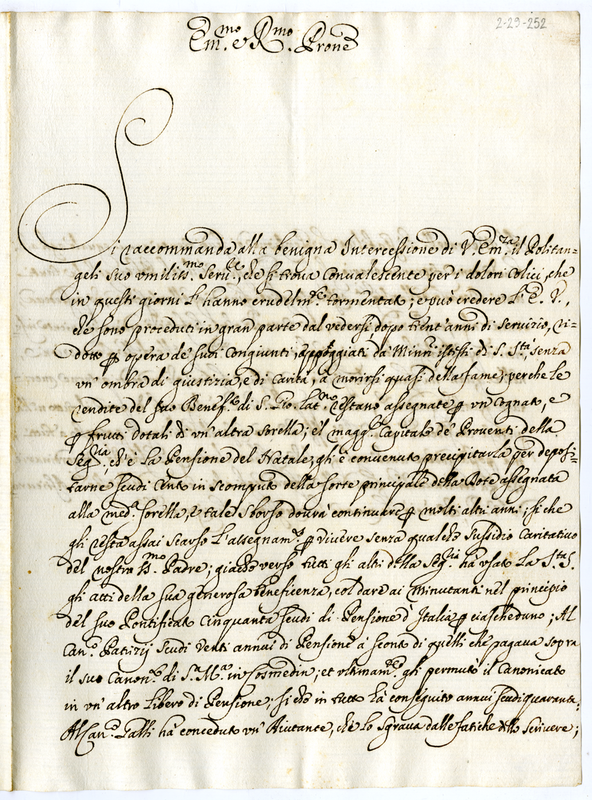 2-29-252
Em.mo e R.mo Prone
Si raccommanda alla benigna Intercessione di V. Em.za il Politan=
geli suo umiliss.mo Serv.e, che si trova Convalescente per i dolori Colici, che
in questi giorni l'hanno crudelm.te tormentato; e può credere l'E. V.,
che sono proceduti in gran parte dal vedersi dopo trent'anni di servizio, ri=
dotto p opera de' suoi Congiunti, appoggiati da Ministri di S. S.tà, senza
un'ombra di giustizia, e di Carità, a morirsi quasi della fame; perche le
rendite del suo Benef.o di S. Gio. Lat.no restano assegnate p un Cognato, e
p frutti dotali di un'altra Sorella; e'l magg.r Capitale de' Proventi della
Seg.ria ch'è la Pensione del Natale, gli è convenuto precipitarla per deposi=
tarne scudi Cento in scomputo della sorte principale della Dote assegnata
alla med.a sorella, e tale sborso dourà continuare p molti altri anni; si che
gli resta assai scarso l'assegnam.to p vivere senza qualche Sussidio Caritativo
del nostro S.mo Padre; giache verso tutti gli altri della Seg.ria ha usato la S.tà S.
gli atti della sua generosa beneficenza, col dare ai Minutanti nel principio
del suo Pontificato Cinquanta scudi di Pensione d'Italia p ciascheduno; Al
Can.co Patrizij Scudi Venti annui di Pensione à sconto di quelli che pagava sopra
il suo Canon.to di S.a M.a in Cosmedin; et ultimam.te gli permutò il Canonicato
in un'altro libero di Pensione. si che in tutto hà conseguito annui scudi quaranta;
Al Can.co Galli ha conceduto un'Aiutante, che lo sgrava dalle fatiche dello Scrivere;